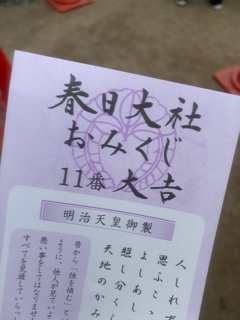 春日大社
おみくじ
11番 大吉
明治天皇御製
人しれず
思ふこゝ
よしあし
照し分く
天地のかみ
昔から「独を慎む」と
ように、他人が見ていよ
悪い事をしてはなりませ
すべてを見通していらっ